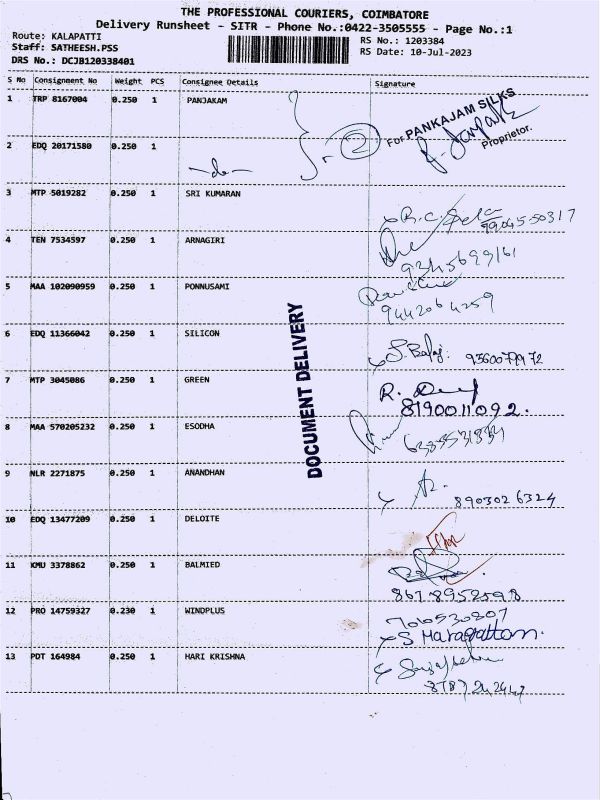 THE PROFESSIONAL COURIERS, COIMBATORE
Delivery Runsheet - SITR - Phone No.:0422-3505555 - Page No.:1
Route: KALAPATTI
RS No.: 1203384
Staff: SATHEESH.PSS
RS Date: 10-Jul-2023
DRS No.: DCJB120338401
S No Consignment No Weight PCS Consignee Details Signature
1 TRP 8167004 0.250 1 PANJAKAM
For PANKAJAM SILKS
Proprietor.
2 EDQ 20171580 0.250 1 -do- 2
3 MTP 5019282 0.250 1 SRI KUMARAN
4 TEN 7534597 0.250 1 ARNAGIRI
5 MAA 102090959 0.250 1 PONNUSAMI
9442064259
6 EDQ 11366042 0.250 1 SILICON
S. Balaji
7 MTP 3045086 0.250 1 GREEN
8190011092.
8 MAA 570205232 0.250 1 ESODHA
9 NLR 2271875 0.250 1 ANANDHAN
8903026324
10 EDQ 13477209 0.250 1 DELOITE
11 KMU 3378862 0.250 1 BALMIED
12 PRO 14759327 0.230 1 WINDPLUS
13 PDT 164984 0.250 1 HARI KRISHNA
DOCUMENT DELIVERY